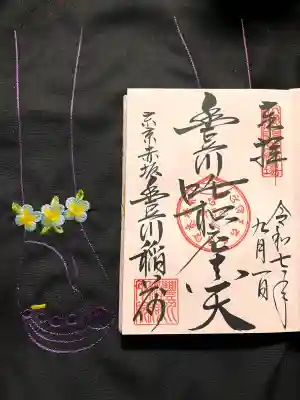 奉拝
令和七年
九月一日
豊川吒枳尼真天
東京赤坂豊川稲荷